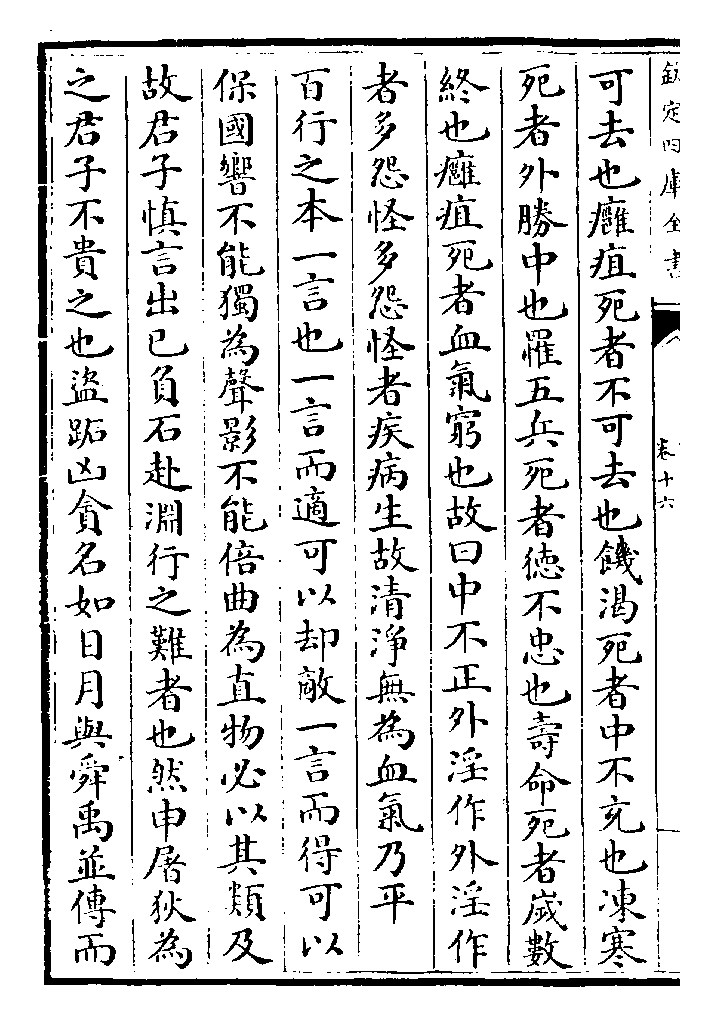 欽定四庫全書
卷十六
可去也癰疽死者不可去也饑渴死者中不充也凍寒
死者外勝中也罹五兵死者徳不忠也壽命死者嵗數
終也癰疽死者血氣窮也故曰中不正外淫作外淫作
者多怨怪多怨怪者疾病生故清淨無為血氣乃平
百行之本一言也一言而適可以却敵一言而得可以
保國響不能獨為聲影不能倍曲為直物必以其類及
故君子慎言出已負石赴淵行之難者也然申屠狄為
之君子不貴之也盜跖凶貪名如日月與舜禹並傳而